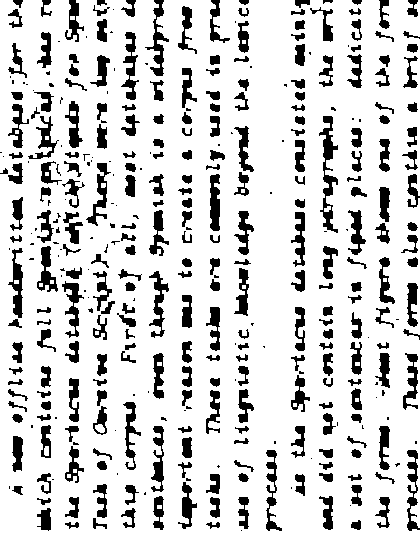 A new offline handwritten database for the
which contains full Spanish sentences, has re
the Spartacus database (which stands for Spa
Task of Cursive Script). There were two mai
this corpus. First of all, most databases do
sentences, even though Spanish is a widespre
important reason was to create a corpus from
tasks. These tasks are commonly used in pra
use of linguistic knowledge beyond the lexico
process.
As the Spartacus database consisted mainly
and did not contain long paragraphs, the wri
a set of sentences in fixed places: dedicate
the forms. Next figure shows one of the form
process. These forms also contain a brief se